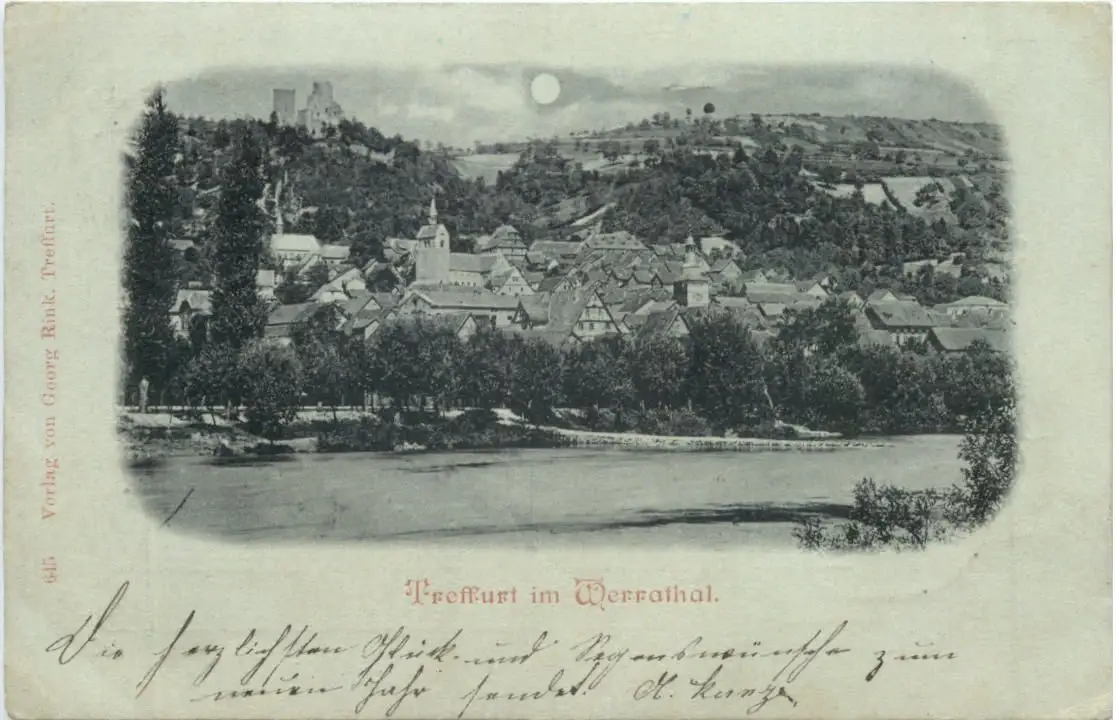 645 Verlag von Georg Rink, Treffurt.
Treffurt im Werrathal.
Die herzlichsten Glück- und Segenswünsche zum
neuen Jahr sendet